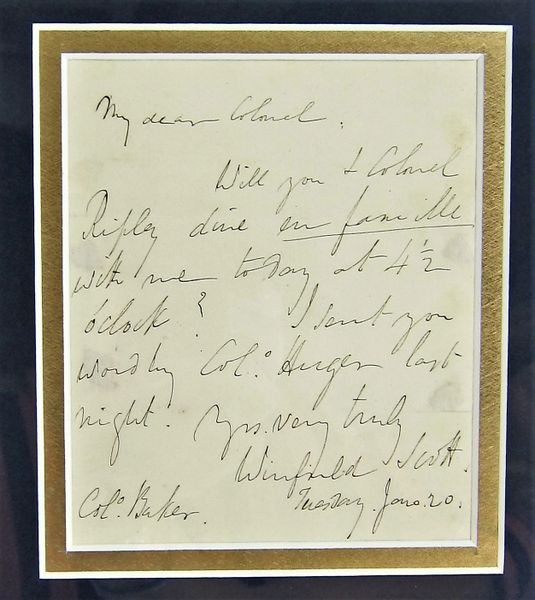 My dear Colonel.
Will you & Colonel
Ripley dine en famille
with me to day at 4 1/2
o'clock? I sent you
word by Col.º Huger last
night. Yrs. very truly
Winfield Scott.
Col.º Baker. Tuesday. Jan.º 20.